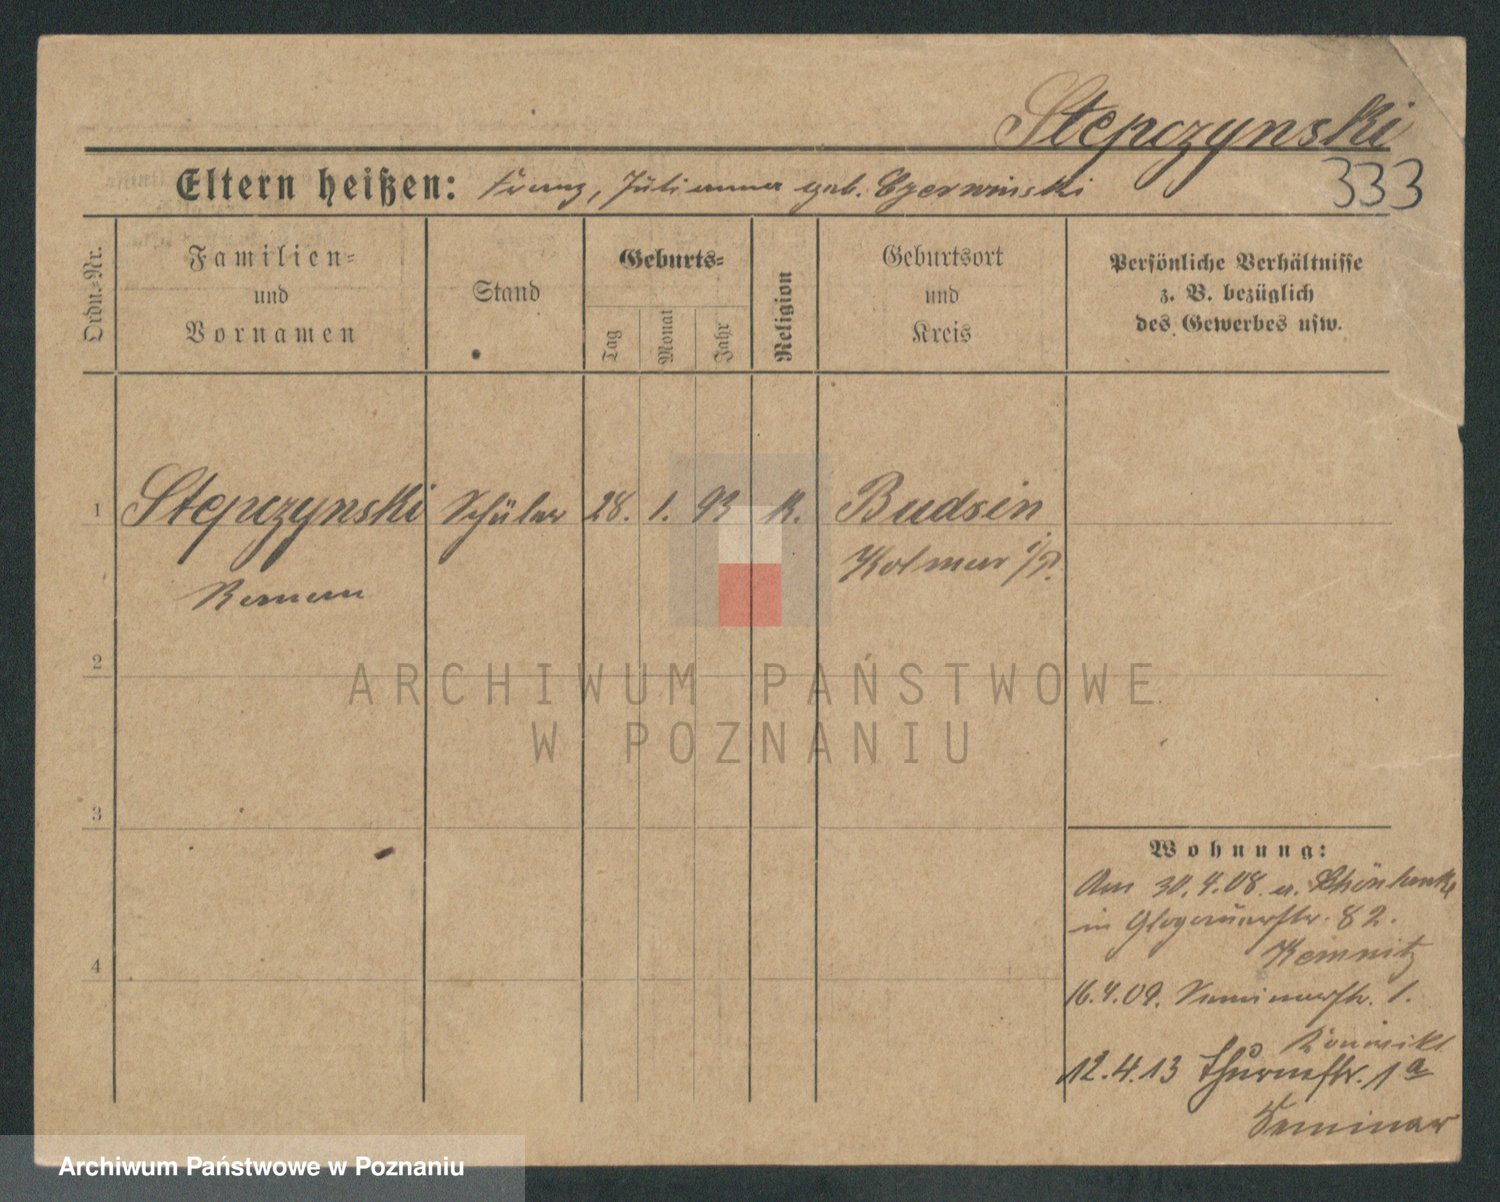 Stepczynski
333
Eltern heißen: Franz, Julianna geb. Czerwinski
Ordn.-Nr.
Familien-
und
Vornamen
Stand
Geburts-
Tag
Monat
Jahr
Religion
Geburtsort
und
Kreis
Persönliche Verhältnisse
z. B. bezüglich
des Gewerbes usw.
1 Stepczynski Schüler 28. 1. 93 K. Budsin
Kolmar i/P.
Roman
2
3
4
Wohnung:
Am 30.4.08. a. Schönlanke
in Glogauerstr. 82.
16.4.09. Seminarstr. 1.
12.4.13 Thurmstr. 1a
Seminar
ARCHIWUM PAŃSTWOWE
W POZNANIU
Archiwum Państwowe w Poznaniu